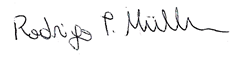 Rodrigo P. Müller